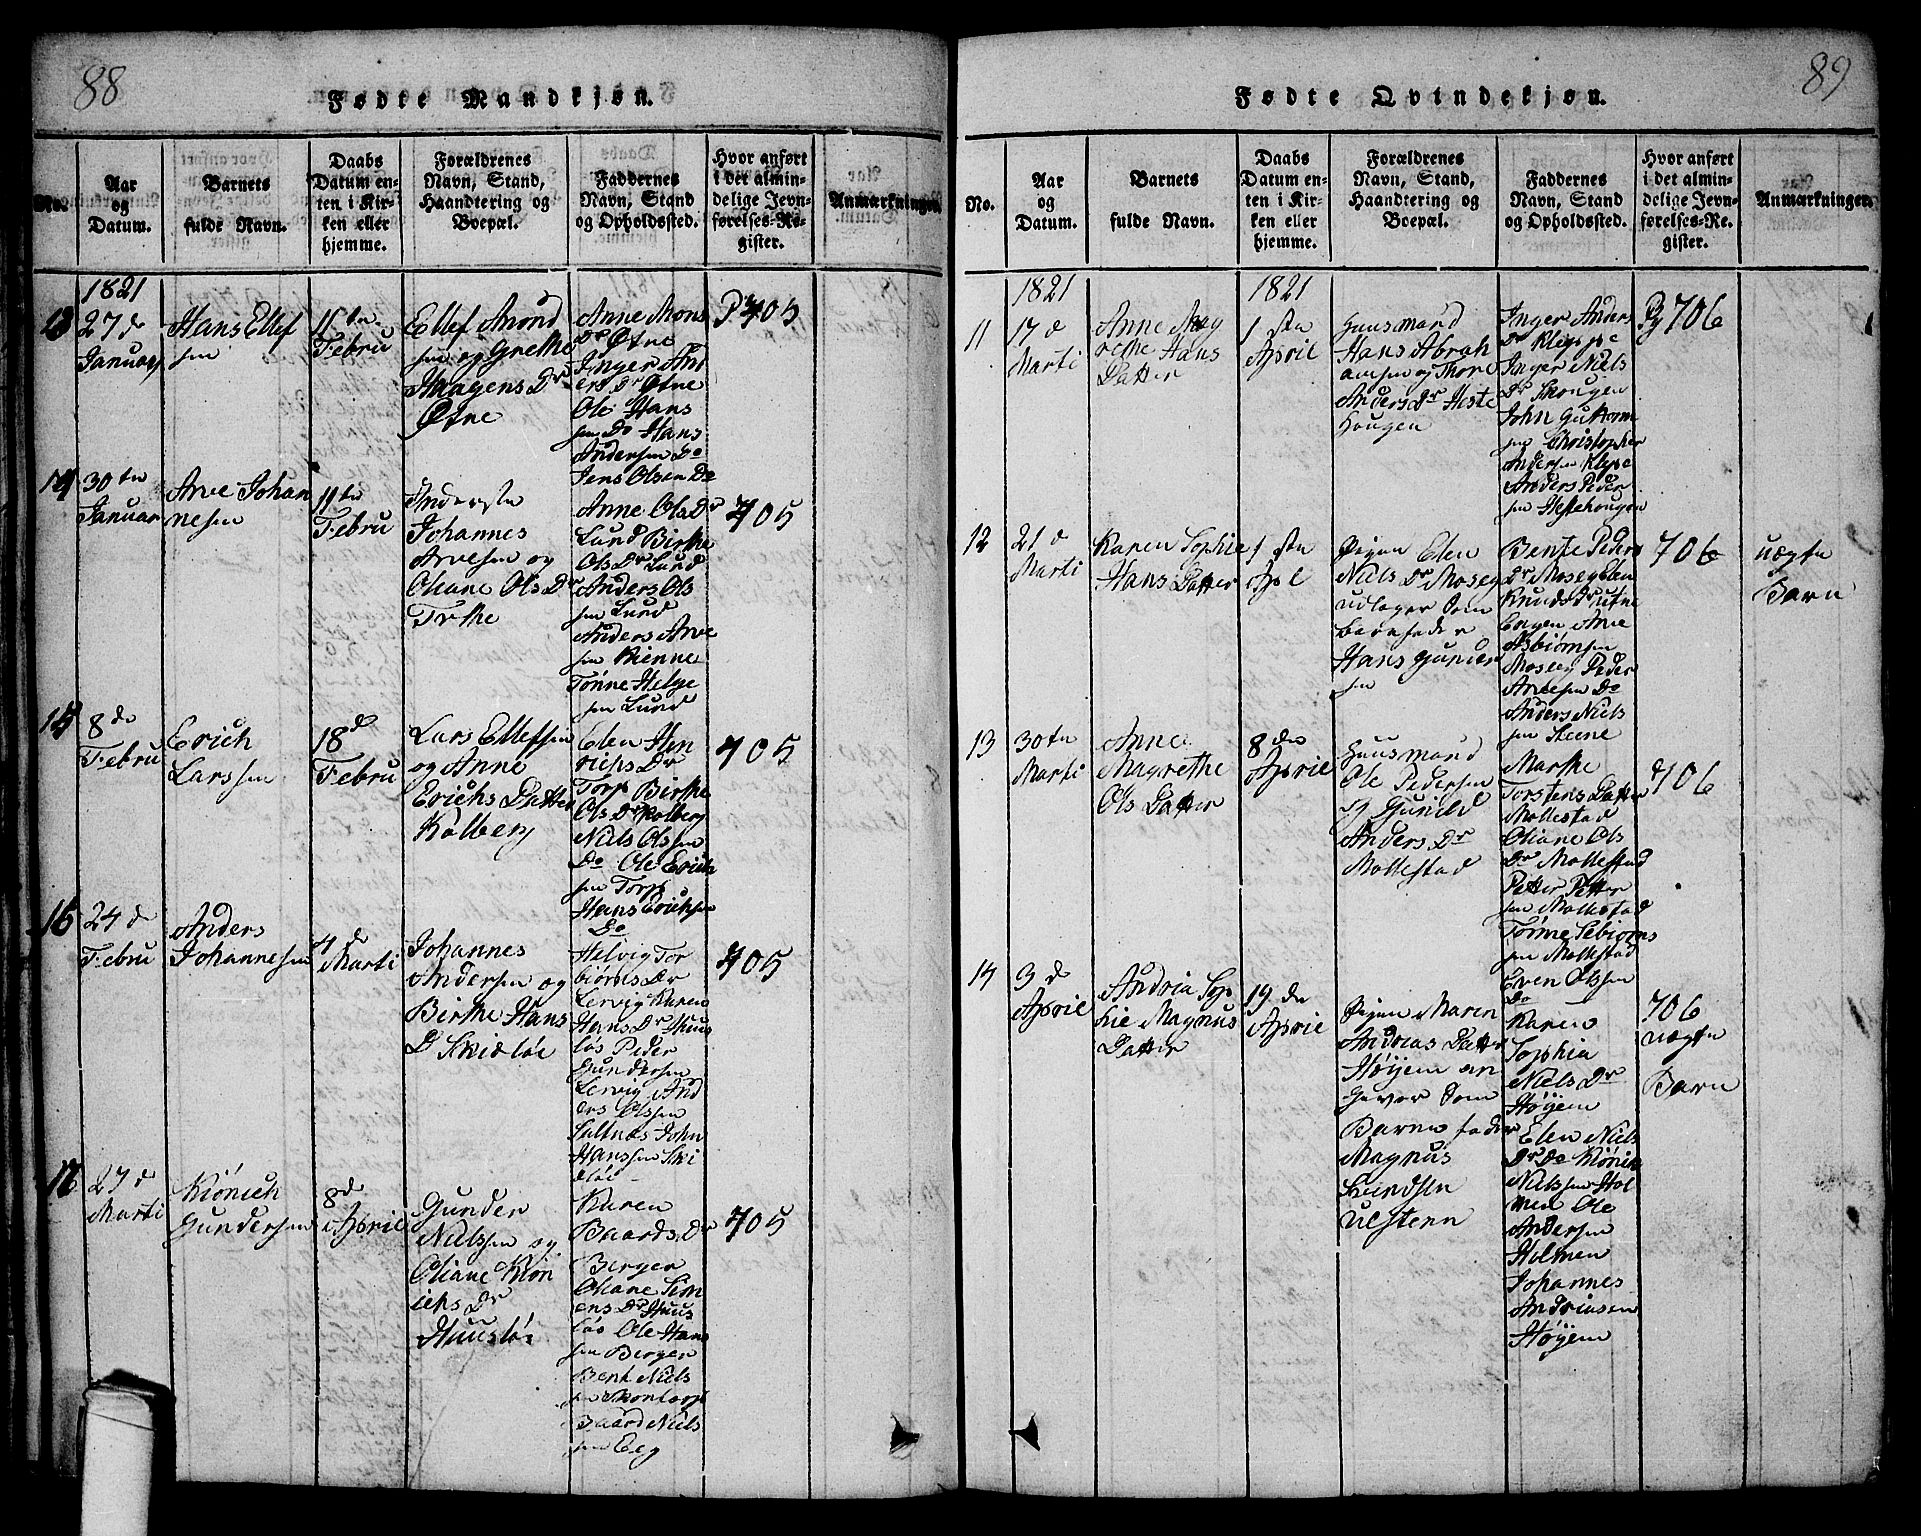 88
Fødte Mandkjøn.
No.
Aar
og
Datum.
Barnets
fulde Navn.
Daabs
Datum en-
ten i Kir-
ken eller
hjemme.
Forældrenes
Navn, Stand,
Haandtering og
Boepæl.
Faddernes
Navn, Stand
og Opholdssted.
Hvor anført
i det almin-
delige Jevn-
førelses-Re-
gister.
Anmærkninger.
1821
13
27 d
Januar
Hans Ellef
sen
11 tn
Febru
Ellef Amond
sen og Grethe
Haagens Dr
Øtne
Anne Mons
Dr Øtne
Inger And
ers Dr Øtne
Ole Hans
sen Do Hans
Andersen Do
Jens Olsen Do
Pg 705
14
30 tn
Januar
Arve Johan
nesen
11 tn
Febru
Johannes
Arvesen og
Oliane Ols Dr
Anne Ols Dr
Lund Birthe
Ols Dr Lund
Anders Ols
sen Lund
Anders Arve
sen Kienne
Tønne Helge
sen Lund
705
15
8 de
Febru
Erich
Larssen
18 d
Febru
Lars Ellefsen
og Anne
Erichs Datter
Kolberg
Elen Hen
richs Dr
Torp Birthe
Ols Dr Kolberg
Niels Olssen
Do Ole Erich
sen Torp
Hans Erichsen
Do
705
16
24 d
Febru
Anders
Johannesen
4 d
Marti
Johannes
Andersen og
Birthe Hans
D Skidløe
Helvig Tor
biørns Dr
Lervig Karen
Hans Dr Huus
løs Peder
Gundersen
Lervig And
ers Olssen
Saltnæs John
Hanssen Ski
dløe
705
17
27 d
Marti
Kiønich
Gundersen
8 de
April
Gunder
Nielssen og
Oliane Kiøn
ichs Dr
Huusløe
Karen
Baards Dr
Berger
Oliane Sim
ens Dr Huus
løs Ole Hans
sen Berger
Bent Niels
sen Skontorp
Baard Niels
sen Eeg
705
89
Fødte Qvindekjøn.
No.
Aar
og
Datum.
Barnets
fulde Navn.
Daabs
Datum en-
ten i Kir-
ken eller
hjemme.
Forældrenes
Navn, Stand,
Haandtering og
Boepæl.
Faddernes
Navn, Stand
og Opholdssted.
Hvor anført
i det almin-
delige Jevn-
førelses-Re-
gister.
Anmærkninger.
1821
1821
11
17 d
Marti
Anne Mag
rethe Hans
Datter
1 ste
April
Huusmand
Hans Abrah
amsen og Thore
Anders Dr Heste
hougen
Inger Anders
Dr Kleppe
Inger Niels
Dr Skougen
John Guttorm
sen Christopher
Andersen Kleppe
Anders Peder
sen Hestehougen
Pg 706
12
21 d
Marti
Karen Sophie
Hans Datter
1 ste
Apl
Pigen Elen
Niels Dr Moseg
udlager Som
barnefader
Hans Gunder
sen
Bente Peders
Dr Moseg Elen
Knuds Dr Utne
Engen Arve
Asbiørnsen
Moseg Peder
Arvesen Do
Anders Niels
sen Steene
706
uægte
Barn
13
30 tn
Marti
Anne
Magrethe
Ols Datter
8 de
April
Huusmand
Ole Pedersen
og Gunild
Anders Dr
Mollestad
Marthe
Torstens Datter
Mollestad
Oliane Ols
Dr Mollestad
Petter Petter
sen Mollestad
Tønne Sebiørns
sen Mollestad
Even Olssen
Do
706
14
3 d
April
Andria Sop
hie Magnus
Datter
19 de
April
Pigen Maren
Andreas Datter
Høyem an
giver Som
Barnefader
Magnus
Svendsen
Ulsteen
Karen
Sophia
Niels Dr
Høyem
Elen Niels
Dr Do Kiønik
Nielssen Hol
men Ole
Andersen
Holmen
Johannes
Andriasen
Høyem
706
uægte
Barn